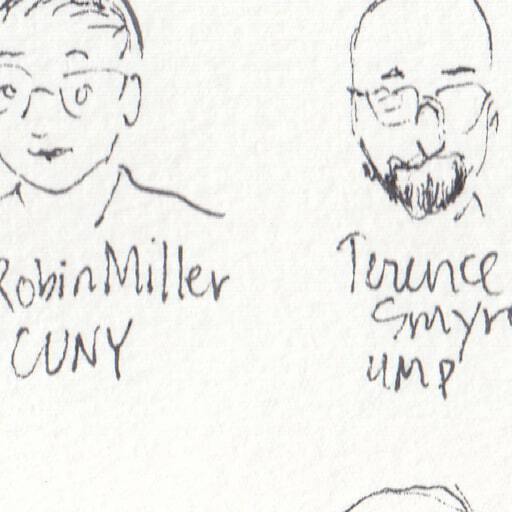 Robin Miller
CUNY
Terence
Smyr
UMP